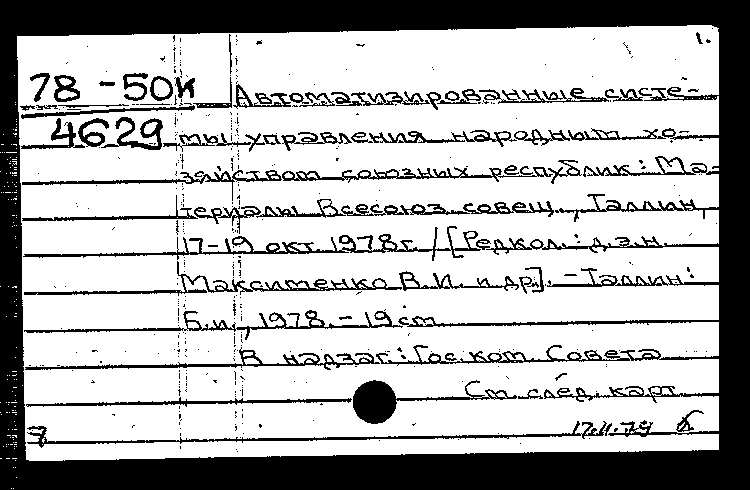 1.
78-50к Автоматизированные систе-
4629 мы управления народным хо-
зяйством союзных республик: Ма-
териалы Всесоюз. совещ., Таллин,
17-19 окт. 1978г. / [Редкол.: д.э.н.
Максименко В.И. и др]. - Таллин:
Б.и., 1978. - 19 см
В надзаг.: Гос. ком. Совета
См. след. карт.
17.11.79